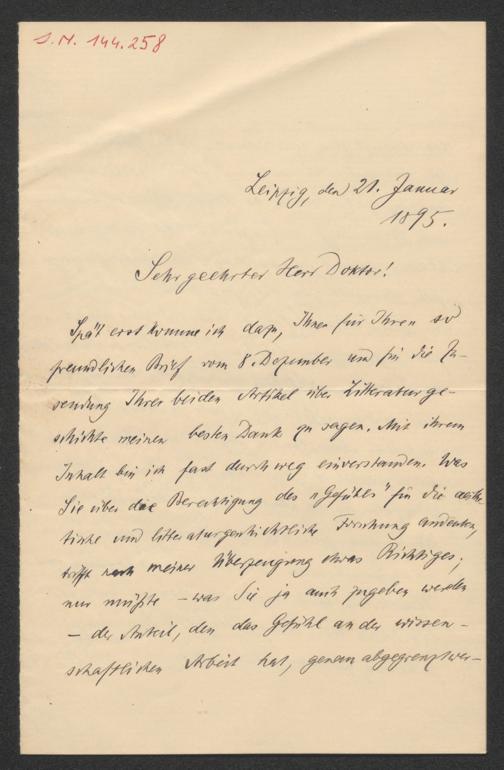 S.N. 144.258
Leipzig, den 21. Januar
1895.
Sehr geehrter Herr Doktor!
Spät erst komme ich dazu, Ihnen für Ihren so
freundlichen Brief vom 8. Dezember und für die Zu-
sendung Ihrer beiden Artikel über Litteraturge-
schichte meinen besten Dank zu sagen. Mit ihrem
Inhalt bin ich fast durchweg einverstanden. Was
Sie über die Berechtigung des „Gefühls" für die aesthe-
tische und litteraturgeschichtliche Forschung andeuten,
trifft nach meiner Überzeugung etwas Richtiges;
nur müßte – was Sie ja auch zugeben werden
– der Anteil, den das Gefühl an der wissen-
schaftlichen Arbeit hat, genau abgegrenzt wer-